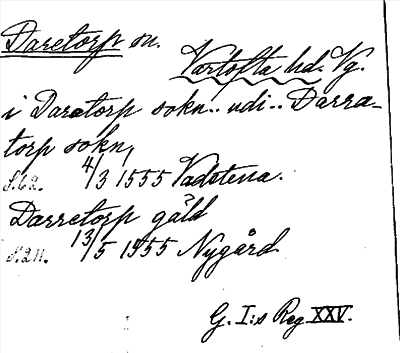 Daretorp sn.
Vartofta hd. Vg.
i Daratorp sokn.. udi.. Darra-
torp sokn,
S.62. 4/3 1555 Vadstena.
Darretorp gäld
S.211. 13/5 1555 Nygård
G. I:s Reg XXV.